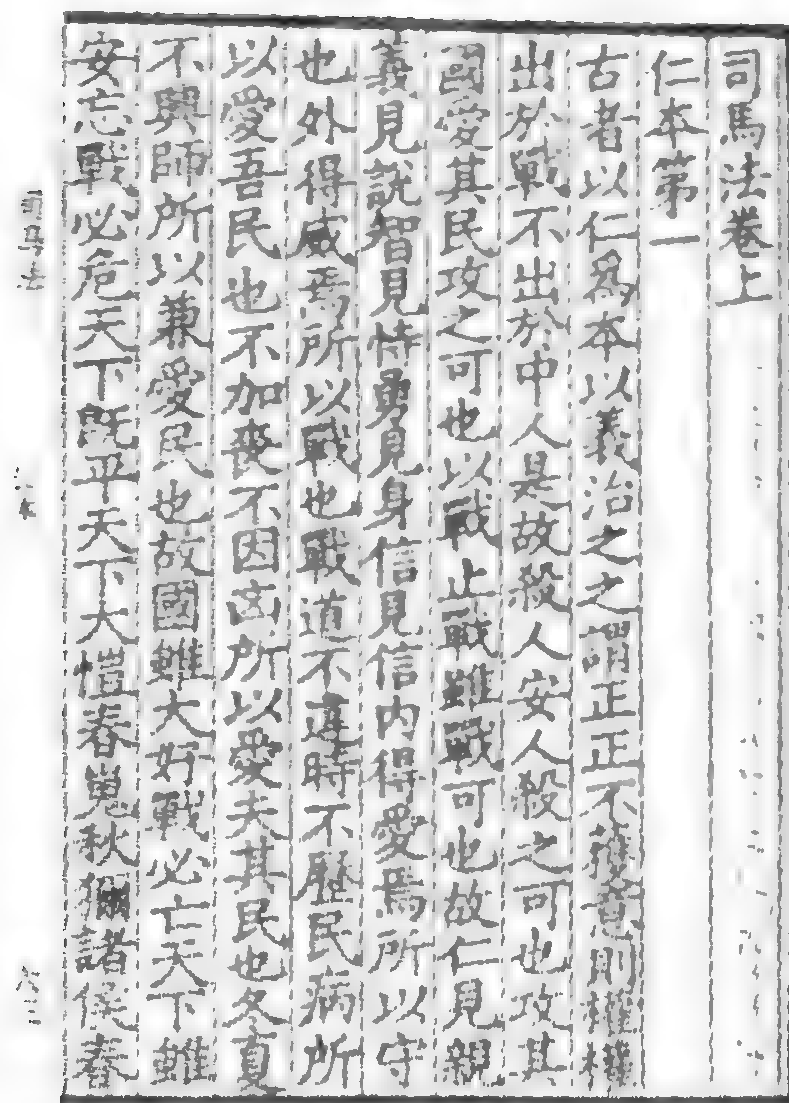 司馬法卷上
仁本第一
古者以仁爲本以義治之之謂正正不獲意則權權
出於戰不出於中人是故殺人安人殺之可也攻其
國愛其民攻之可也以戰止戰雖戰可也故仁見親
義見說智見恃勇見身信見信內得愛焉所以守
也外得威焉所以戰也戰道不違時不歷民病所
以愛吾民也不加喪不因凶所以愛夫其民也冬夏
不興師所以兼愛民也故國雖大好戰必亡天下雖
安忘戰必危天下旣平天下大愷春蒐秋獮諸侯春